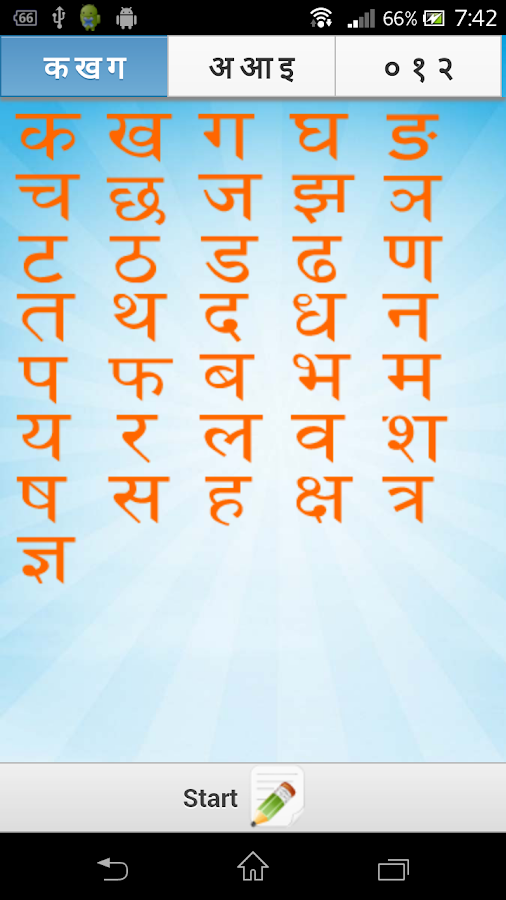 66 66% 7:42
क ख ग अ आ इ ० १ २
क ख ग घ ङ
च छ ज झ ञ
ट ठ ड ढ ण
त थ द ध न
प फ ब भ म
य र ल व श
ष स ह क्ष त्र
ज्ञ
Start